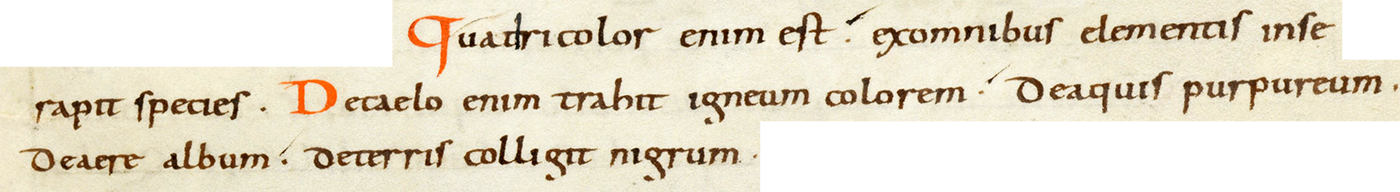 Quadricolor enim est. exomnibus elementis inse
rapit species. Decaelo enim trahit igneum colorem. Deaquis purpureum.
Deaere album. deterris colligit nigrum.